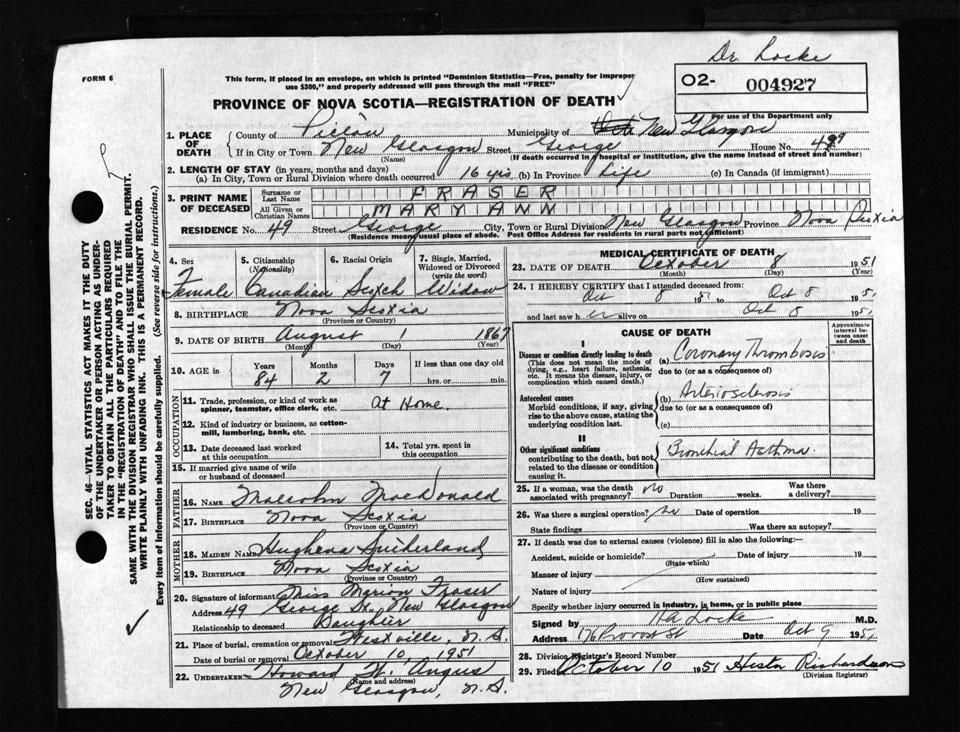 Dr. Locke
FORM 6
This form, if placed in an envelope, on which is printed "Dominion Statistics—Free, penalty for improper
use $300," and properly addressed will pass through the mail "FREE"
O2- 004927
For use of the Department only
PROVINCE OF NOVA SCOTIA—REGISTRATION OF DEATH
1. PLACE OF DEATH
County of Pictou Municipality of New Glasgow
If in City or Town New Glasgow Street George House No. 49
(Name) (If death occurred in a hospital or institution, give the name instead of street and number)
2. LENGTH OF STAY (in years, months and days)
(a) In City, Town or Rural Division where death occurred 16 yrs (b) In Province Life (c) In Canada (if immigrant)
3. PRINT NAME OF DECEASED
Surname or Last Name FRASER
All Given or Christian Names MARY ANN
RESIDENCE No. 49 Street George City, Town or Rural Division New Glasgow Province Nova Scotia
(Residence means usual place of abode. Post Office Address for residents in rural parts not sufficient)
4. Sex 5. Citizenship (Nationality) 6. Racial Origin 7. Single, Married, Widowed or Divorced (write the word)
Female Canadian Scotch Widow
8. BIRTHPLACE Nova Scotia
(Province or Country)
9. DATE OF BIRTH August 1 1867
(Month) (Day) (Year)
10. AGE in Years Months Days If less than one day old
84 2 7 hrs. or min.
OCCUPATION
11. Trade, profession, or kind of work as
spinner, teamster, office clerk, etc. At Home
12. Kind of industry or business, as cotton-
mill, lumbering, bank, etc.
13. Date deceased last worked
at this occupation
14. Total yrs. spent in
this occupation
15. If married give name of wife
or husband of deceased
FATHER
16. NAME Malcolm MacDonald
17. BIRTHPLACE Nova Scotia
(Province or Country)
MOTHER
18. MAIDEN NAME Hughena Sutherland
19. BIRTHPLACE Nova Scotia
(Province or Country)
20. Signature of informant Miss Marion Fraser
Address 49 George St., New Glasgow
Relationship to deceased Daughter
21. Place of burial, cremation or removal Westville, N.S.
Date of burial or removal October 10, 1951
22. UNDERTAKER Howard W. Angus
(Name and address)
New Glasgow, N.S.
MEDICAL CERTIFICATE OF DEATH
23. DATE OF DEATH October 8 1951
(Month) (Day) (Year)
24. I HEREBY CERTIFY that I attended deceased from:
Oct 8 1951 Oct 8 1951
and last saw her alive on Oct 8 1951
CAUSE OF DEATH
Approximate interval between onset and death
I
Disease or condition directly leading to death
(This does not mean the mode of
dying, e.g., heart failure, asthenia,
etc. It means the disease, injury, or
complication which caused death.)
(a) Coronary Thrombosis
due to (or as a consequence of)
Antecedent causes
Morbid conditions, if any, giving
rise to the above cause, stating the
underlying condition last.
(b) Arteriosclerosis
due to (or as a consequence of)
(c)
II
Other significant conditions
contributing to the death, but not
related to the disease or condition
causing it.
Bronchial Asthma
25. If a woman, was the death
associated with pregnancy? no Duration weeks. Was there
a delivery?
26. Was there a surgical operation? no Date of operation 19
State findings Was there an autopsy?
27. If death was due to external causes (violence) fill in also the following:—
Accident, suicide or homicide? Date of injury 19
(State which)
Manner of injury
(How sustained)
Nature of injury
Specify whether injury occurred in industry, in home, or in public place
Signed by Locke M.D.
Address 176 Provost St Date Oct 9 1951
28. Division Registrar's Record Number
29. Filed October 10 1951 Hester Richardson
(Division Registrar)
SEC. 46—VITAL STATISTICS ACT MAKES IT THE DUTY
OF THE UNDERTAKER OR PERSON ACTING AS UNDER-
TAKER TO OBTAIN ALL THE PARTICULARS REQUIRED
IN THE "REGISTRATION OF DEATH" AND TO FILE THE
SAME WITH THE DIVISION REGISTRAR WHO SHALL ISSUE THE BURIAL PERMIT.
WRITE PLAINLY WITH UNFADING INK. THIS IS A PERMANENT RECORD.
Every item of information should be carefully supplied. (See reverse side for instructions.)